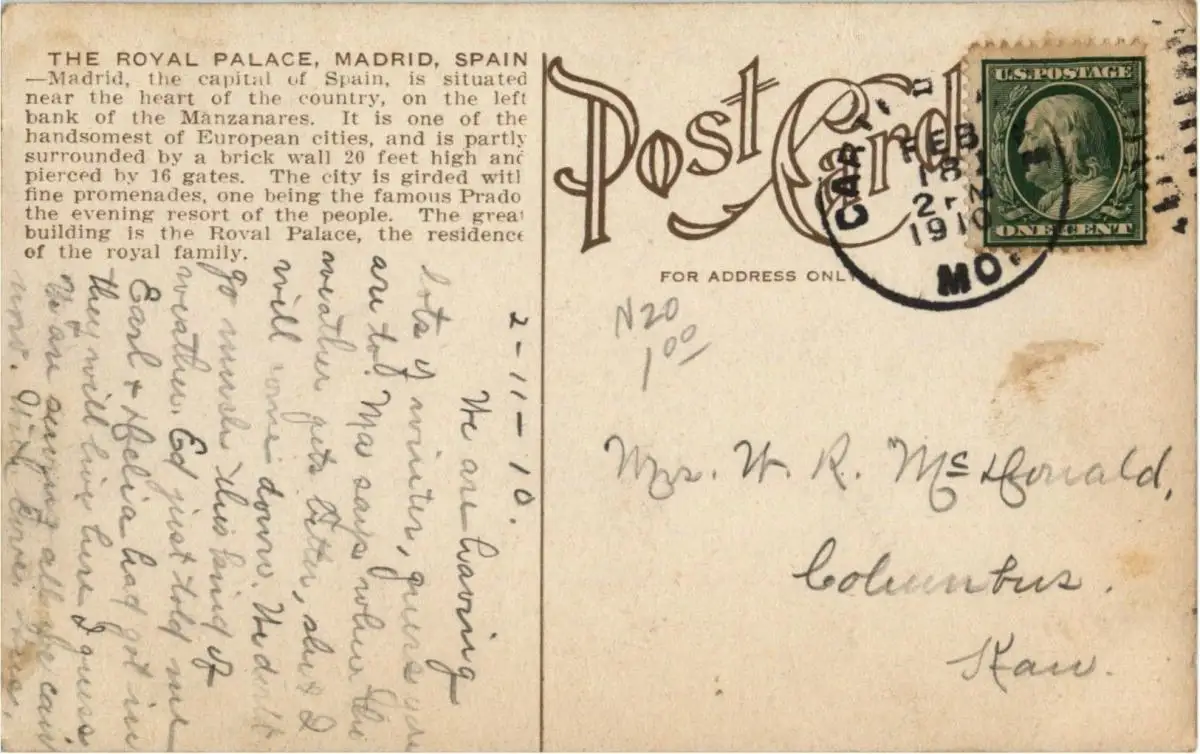 THE ROYAL PALACE, MADRID, SPAIN
—Madrid, the capital of Spain, is situated
near the heart of the country, on the left
bank of the Manzanares. It is one of the
handsomest of European cities, and is partly
surrounded by a brick wall 20 feet high and
pierced by 16 gates. The city is girded with
fine promenades, one being the famous Prado
the evening resort of the people. The great
building is the Royal Palace, the residence
of the royal family.
2-11-10.
We are having
lots of winter, guess you
are to. Ma says when the
weather gets better, she & I
will come down. We don't
go much this kind of
weather. Ed just told me
Earl & Helia had got in
they will live here I guess
We are sewing all we can
now. With love
Post Card
FOR ADDRESS ONLY
CART
FEB
18
2 PM
1910
MO.
U.S. POSTAGE
ONE CENT
N20
1 00
Mrs. W. R. McDonald,
Columbus.
Kan.